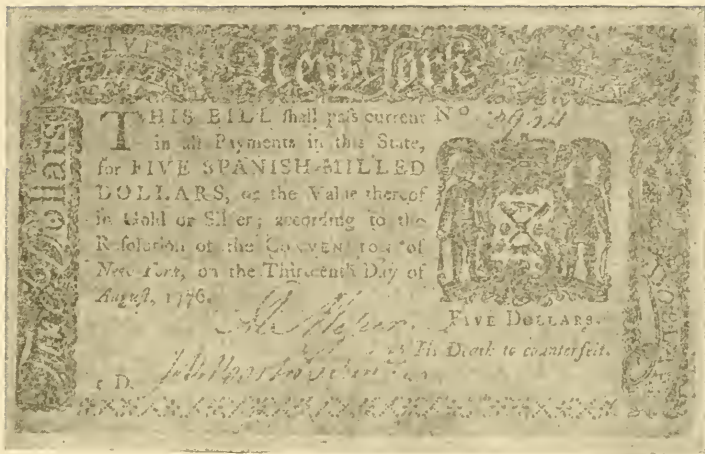 New-York
THIS BILL shall pass current
in all Payments in this State,
for FIVE SPANISH-MILLED
DOLLARS, or the Value thereof
in Gold or Silver; according to the
Resolution of the CONVENTION of
New-York, on the Thirteenth Day of
August, 1776.
No
FIVE DOLLARS.
'Tis Death to counterfeit.
5 D.
Dollars